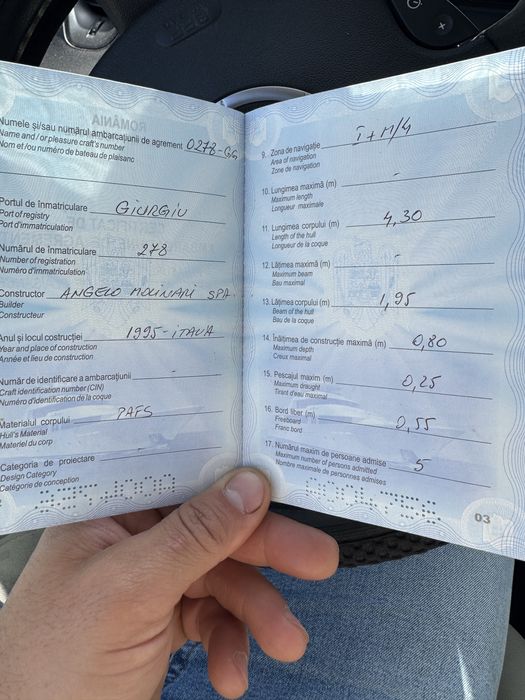 ROMÂNIA
Numele şi/sau numărul ambarcaţiunii de agrement 0278-GG
Name and / or pleasure craft's number
Nom et /ou numéro de bateau de plaisanc
Portul de înmatriculare GIURGIU
Port of registry
Port d'immatriculation
Numărul de înmatriculare 278
Number of registration
Numéro d'immatriculation
Constructor ANGELO MOLINARI SPA
Builder
Constructeur
Anul şi locul costrucţiei 1995-ITALIA
Year and place of construction
Année et lieu de construction
Număr de identificare a ambarcaţiunii -
Craft identification number (CIN)
Numéro d'identification de la coque
Materialul corpului PAFS
Hull's Material
Materiel du corp
Categoria de proiectare -
Design Category
Catégorie de conception
9. Zona de navigaţie I+M/4
Area of navigation
Zone de navigation
10. Lungimea maximă (m) -
Maximum length
Longueur maximale
11. Lungimea corpului (m) 4,30
Length of the hull
Longueur de la coque
12. Lăţimea maximă (m) -
Maximum beam
Bau maximal
13. Lăţimea corpului (m) 1,95
Beam of the hull
Bau de la coque
14. Înălţimea de construcţie maximă (m) 0,80
Maximum depth
Creux maximal
15. Pescajul maxim (m) 0,25
Maximum draught
Tirant d'eau maximal
16. Bord liber (m) 0,55
Freeboard
Franc bord
17. Numărul maxim de persoane admise 5
Maximum number of persons admitted
Nombre maximale de personnes admises
03